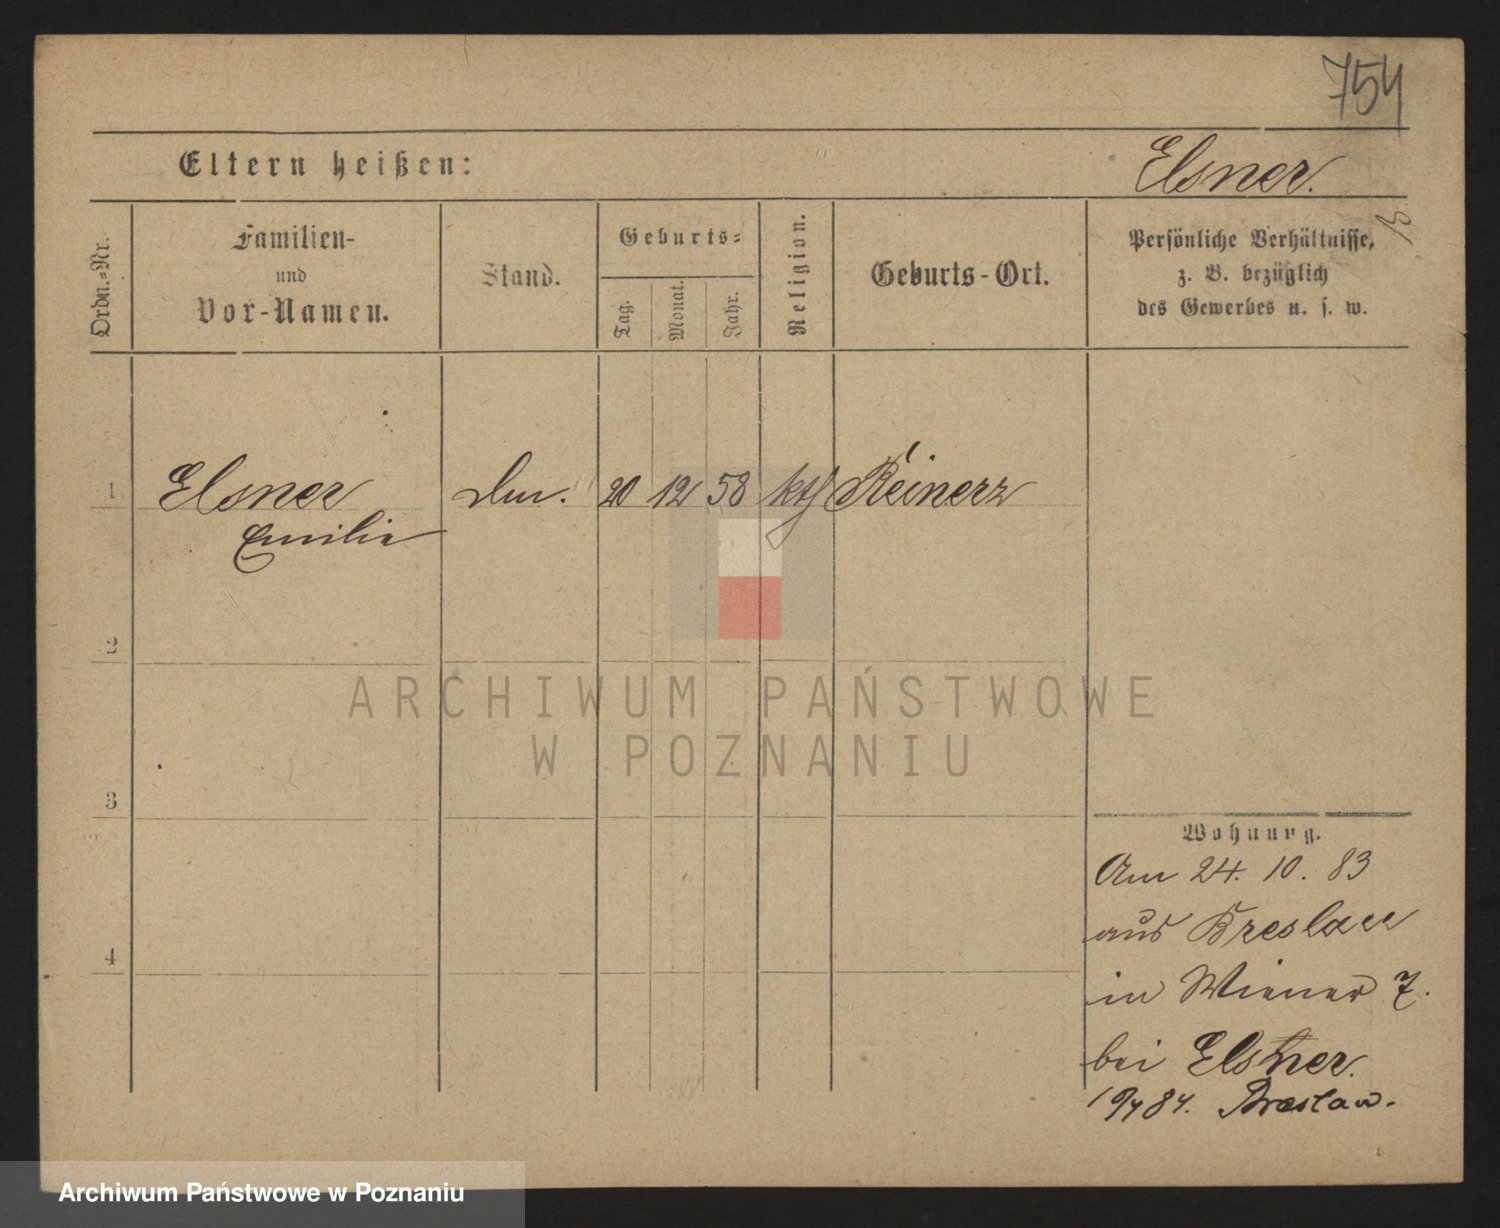 754
Eltern heißen:
Elsner.
Ordn.=Nr.
Familien-
und
Vor-Namen.
Stand.
Geburts=
Tag.
Monat.
Jahr.
Religion.
Geburts-Ort.
Persönliche Verhältnisse,
z. B. bezüglich
des Gewerbes u. s. w.
1 Elsner 20 12 58 kth Reinerz
Emilie
2
3
4
Wohnung.
Am 24. 10. 83
aus Breslau
in Wiener 7.
bei Elsner.
84. Breslau.
ARCHIWUM PAŃSTWOWE
W POZNANIU
Archiwum Państwowe w Poznaniu